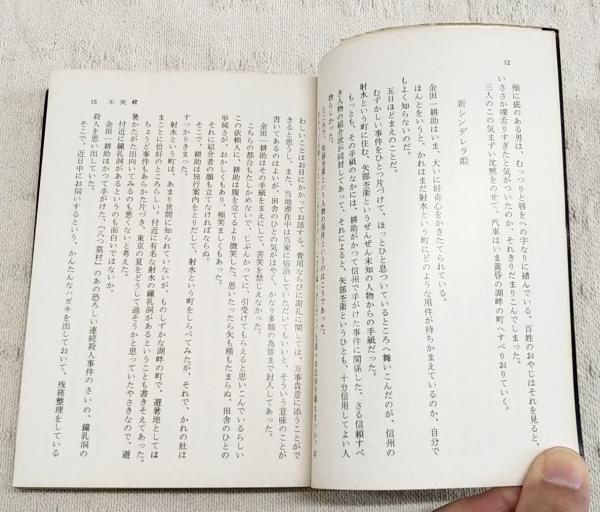 12
頰に疵のある男は、むっつりと唇をへの字なりに結んでいる。百姓のおやじはそれを見ると、
いささか喋舌りすぎたと気がついたのか、それきりだまりこんでしまった。
三人のこの気まずい沈黙をのせて、汽車はいま黄昏の湖畔の町へすべりおりていく。
新シンデレラ姫
金田一耕助はいま、大いに好奇心をかきたてられている。
ほんとをいうと、かれはまだ射水という町にどのような用件が待ちかまえているのか、自分で
もよく知らないのだ。
五日ほどまえのことだ。
むずかしい事件をひとつ片づけて、ほっとひと息ついているところへ舞いこんだのが、信州の
射水という町に住む、矢部杢衛というぜんぜん未知の人物からの手紙だった。
もっとも、その手紙のなかには、耕助がかつて信州で手がけた事件に関係した、さる信頼すべ
き人物の紹介状が同封してあって、それによると、矢部杢衛というひとも、十分信用してよい人
物らしかった。
13 不死蝶
わしいことはお目にかかってお話する。費用ならびに謝礼に関しては、万事貴意に添うことがで
きると思うし、また、当地滞在中は当家に宿泊していただいてもいいと、そういう意味のことが
書いてあるのはよいが、田舎のひとの気がはやく、かなり多額の為替まで封入してあった。
金田一耕助はその手紙をまえにして、苦笑を禁じえなかった。
こちらの都合もたしかめないで、じぶんかってに、引受けてもらえると思いこんでいるらしい
この依頼人に、耕助は腹を立てるより微笑した。思いたったら矢も楯もたまらぬ、田舎のひとの
単純さが、おかしくもあり、頰笑ましくもあった。
それに紹介者の顔も立てなければならぬ。
そこで、耕助は旅行案内をとりだして、射水という町をしらべてみたが、それで、かれの肚は
すっかりきまった。
射水という町は、あまり世間に知られていないが、ものしずかな湖畔の町で、避暑地としては
まことに恰好のところらしい。付近に有名な射水の鐘乳洞があるということも書きそえてあった。
ちょうど事件もあらかた片づき、東京の夏をどうして過そうかと思っていたやさきなので、避
暑かたがた出向いてみるのも悪くないと考えた。
付近に鐘乳洞があるというのも面白いではないか。
金田一耕助はかつて手がけた、「八つ墓村」のあの恐ろしい連続殺人事件のさいの、鐘乳洞の
殺人を思い出していた。
そこで、近日中にお伺いするという、かんたんなハガキを出しておいて、残務整理をしている